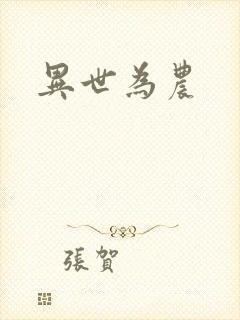 異世為農
張賀